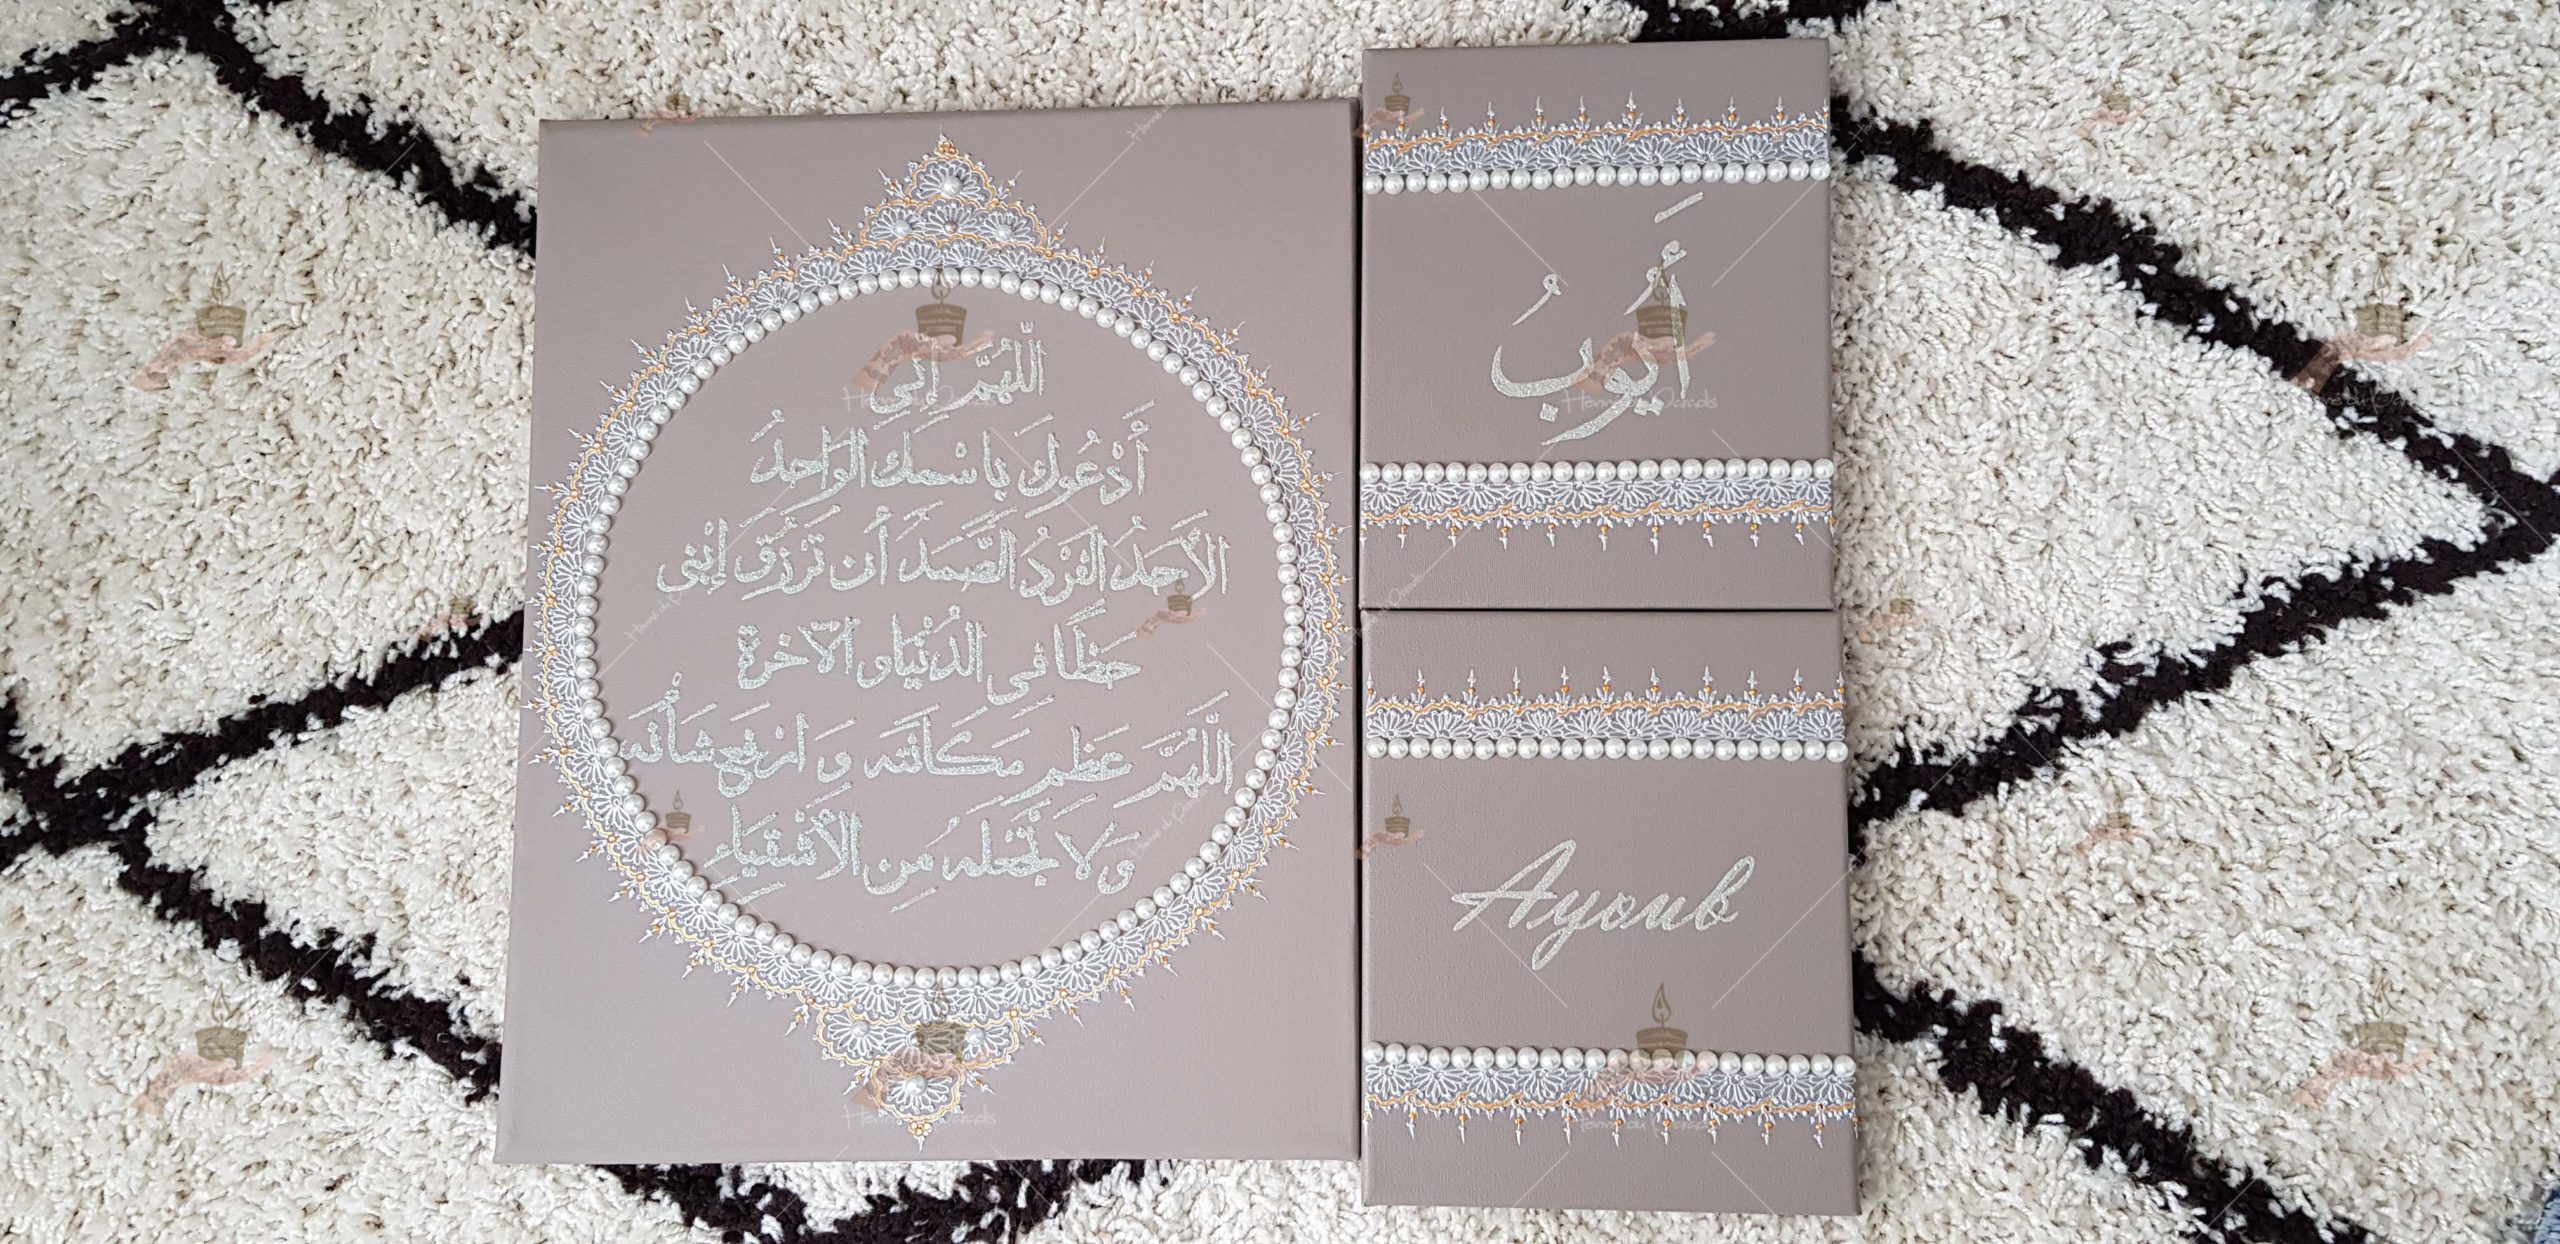 اللّهُمَّ إنّي
أَدْعُوكَ بِاسْمِكَ الوَاحِدُ
الأَحَدُ الفَرْدُ الصَّمَدَ أن تَرْزُقَ إبْنِي
حَظًا فِي الدُنْيَا و الآخرة
اللَّهُمَّ عَظِم مَكَانَتَه وَ ارْبَح شَأْنَه
وَلَا تَجْعَلهُ مِنَ الأَشْقِيَاءِ
أَيُّوبُ
Ayoub
Henné du Paradis